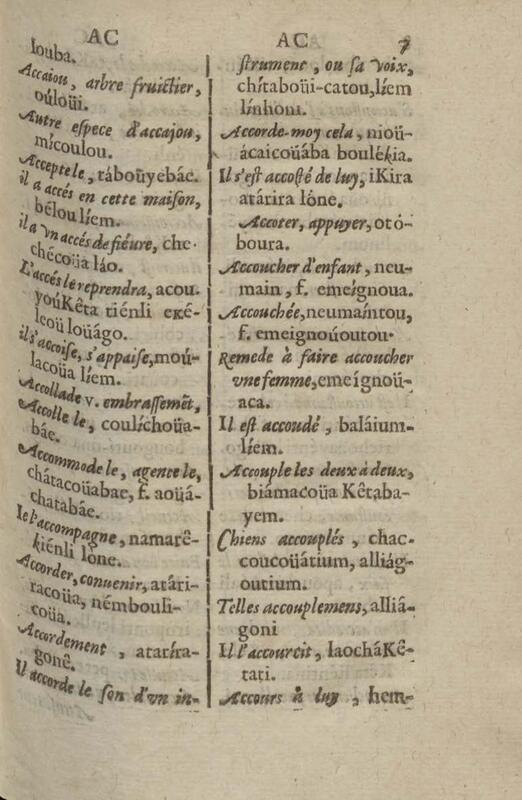 AC
Iouba.
Accaiou, arbre fruictier,
oúloüi.
Autre espece d'accajou,
mícoulou.
Acceptele, táboüyebáe.
il a accés en cette maison,
bélou líem.
il a vn accés de fiéure, che-
chécoüa láo.
L'accés le reprendra, acou-
yoúKêta tiénli eKé-
leou loüágo.
il s'accoise, s'appaise, moú-
lacoüa líem.
Accollade v. embrassemẽt,
Accolle le, coulíchoüa-
báe.
Accommode le, agente le,
chátacoüabae, f. aoüá-
chatabáe.
Ie l'accompagne, namarê-
kiénli lône.
Accorder, conuenir, atári-
racoüa, némbouli-
coüa.
Accordement, ataríra-
gonê.
Il accorde le son d'vn in-
AC 7
strument, ou sa voix,
chítaboüi-catou, líem
línhoni.
Accorde-moy cela, nioü-
ácaicoüába boulékia.
Il s'est accosté de luy, iKira
atárira lóne.
Accoter, appuyer, otó-
boura.
Accoucher d'enfant, neu-
main, f. emeígnoua.
Accouchée, neumaíntou,
f. emeignoúoutou.
Remede à faire accoucher
vne femme, emeígnoü-
aca.
Il est accoudé, baláium-
líem.
Accouple les deux à deux,
biámacoüa Kêtaba-
yem.
Chiens accouplés, chac-
coucoüátium, alliág-
outium.
Telles accouplemens, alliá-
goni
Il l'accourcit, IaochaKê-
tati.
Accours à luy, hem-